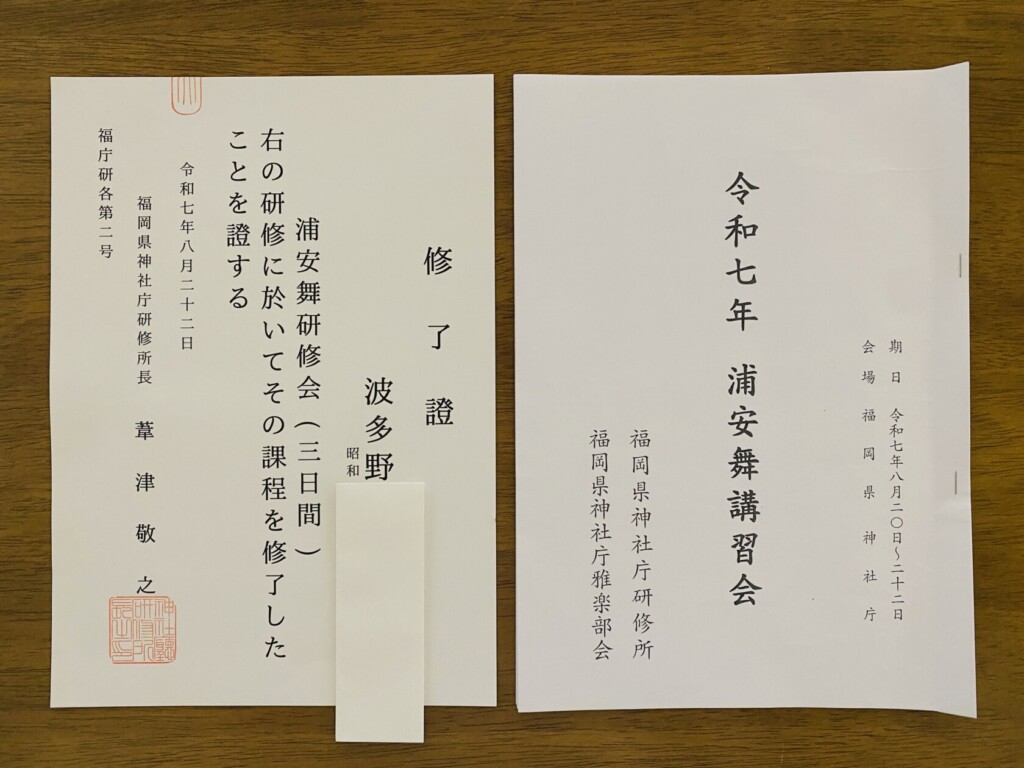 修了證
波多野
昭和
浦安舞研修会（三日間）
右の研修に於いてその課程を修了した
ことを證する
令和七年八月二十二日
福岡県神社庁研修所長　葦津敬之
福庁研各第二号
期日　令和七年八月二〇日～二十二日
会場　福岡県神社庁
令和七年　浦安舞講習会
福岡県神社庁研修所
福岡県神社庁雅楽部会